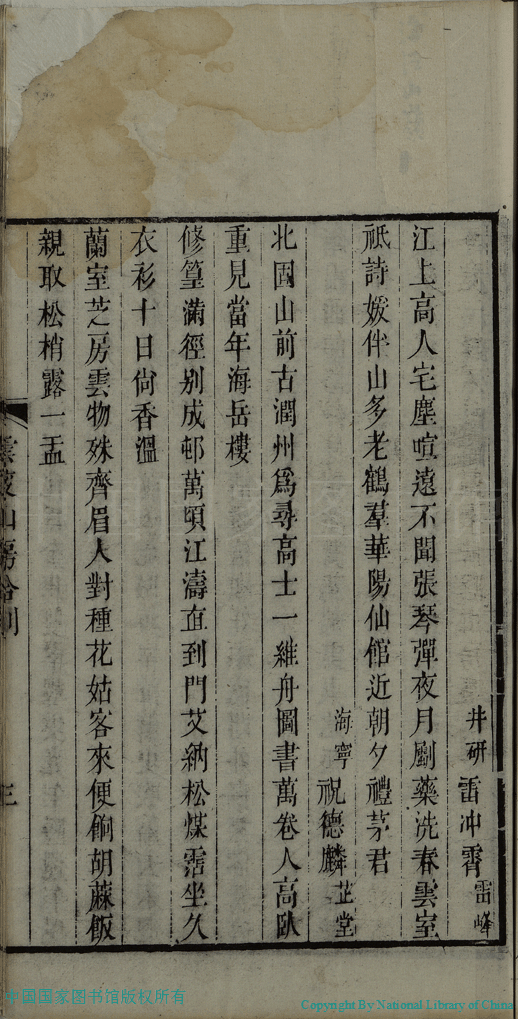 井研雷冲霄雷峰
江上高人宅塵喧遠不聞張琴彈夜月劚藥洗春雲室
祇詩媛伴山多老鶴羣華陽仙館近朝夕禮茅君
海寧祝德麟芷堂
北固山前古潤州爲尋高士一維舟圖書萬卷人高臥
重見當年海岳樓
修篁滿徑别成邨萬頃江濤直到門艾納松煤霑坐久
衣衫十日尙香溫
蘭室芝房雲物殊齊眉人對種花姑客來便餉胡蔴飯
親取松梢露一盂
山房合刻
三
中国国家图书馆版权所有
Copyright By National Library of China